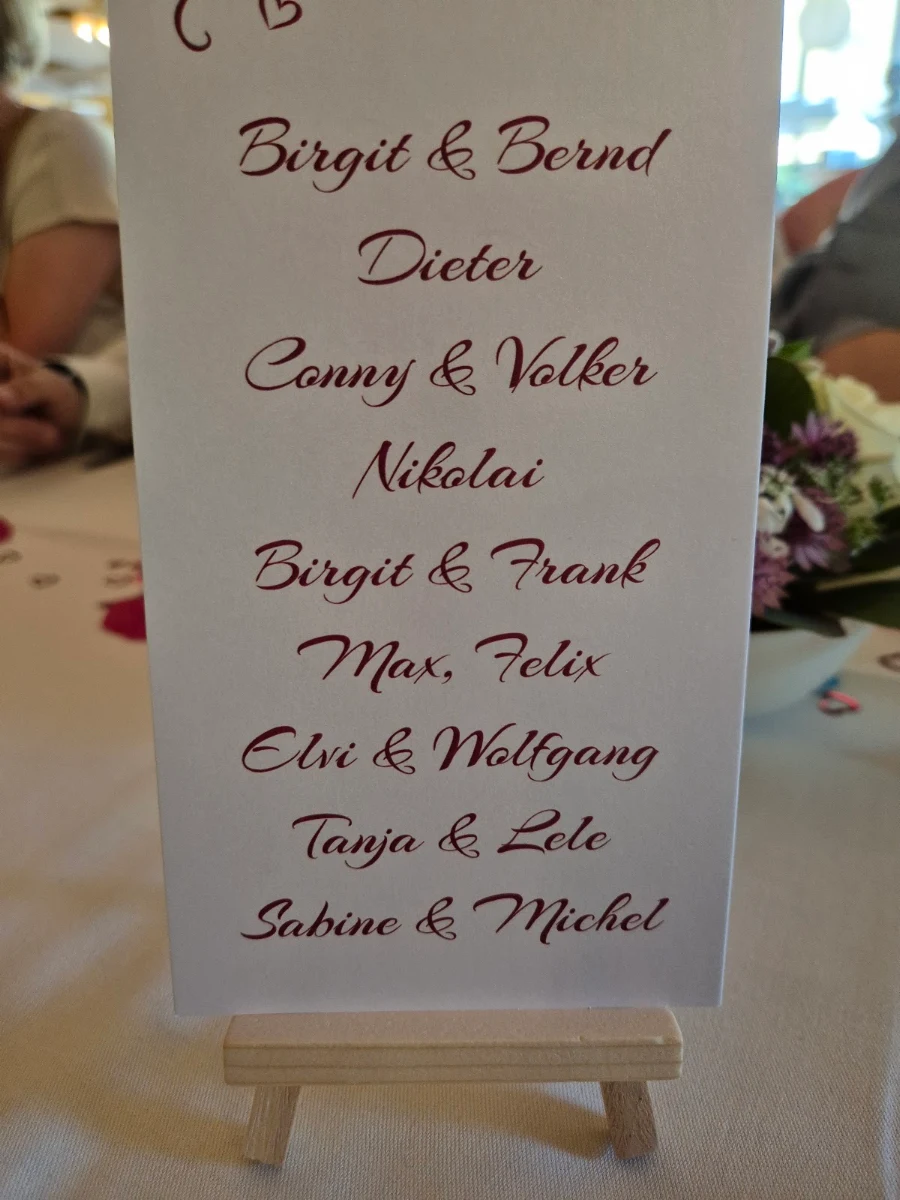 Birgit & Bernd
Dieter
Conny & Volker
Nikolai
Birgit & Frank
Max, Felix
Elvi & Wolfgang
Tanja & Lele
Sabine & Michel